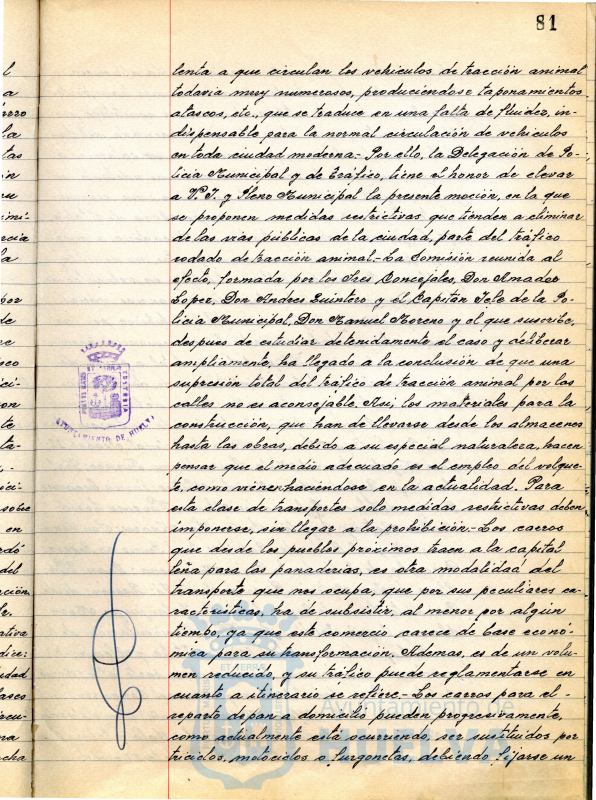 81
lenta a que circulan los vehiculos de tracción animal
todavia muy numerosos, produciendose taponamientos
atascos, etc., que se traduce en una falta de fluidez, in-
dispensable para la normal circulación de vehiculos
en toda ciudad moderna.- Por ello, la Delegación de Po-
licia Municipal y de Tráfico, tiene el honor de elevar
a V.I. y Pleno Municipal la presente moción, en la que
se proponen medidas restrictivas que tienden a eliminar
de las vias públicas de la ciudad, parte del tráfico
rodado de tracción animal.- La Comisión reunida al
efecto, formada por los Sres Concejales, Don Amadeo
Lopez, Don Andres Quintero y el Capitán Jefe de la Po-
licia Municipal, Don Manuel Moreno y el que suscribe,
despues de estudiar detenidamente el caso y deliberar
ampliamente, ha llegado a la conclusión de que una
supresión total del tráfico de tracción animal por las
calles no es aconsejable. Asi, los materiales para la
construcción, que han de llevarse desde los almacenes
hasta las obras, debido a su especial naturaleza, hacen
pensar que el medio adecuado es el empleo del volque-
te, como viene haciendose en la actualidad. Para
esta clase de transportes solo medidas restrictivas deben
imponerse, sin llegar a la prohibición.- Los carros
que desde los pueblos próximos traen a la capital
leña para las panaderias, es otra modalidad del
transporte que nos ocupa, que por sus peculiares ca-
racteristicas, ha de subsistir, al menor por algún
tiembo, ya que este comercio carece de base econó-
mica para su transformación. Ademas, es de un volu-
men reducido, y su tráfico puede reglamentarse en
cuanto a itinerario se refiere.- Los carros para el -
reparto de pan a domicilio pueden progresivamente,
como actualmente está ocurriendo, ser sustituidos por
triciclos, motociclos o furgonetas, debiendo fijarse un
AYUNTAMIENTO DE HUELVA
Ayuntamiento de
HUELVA